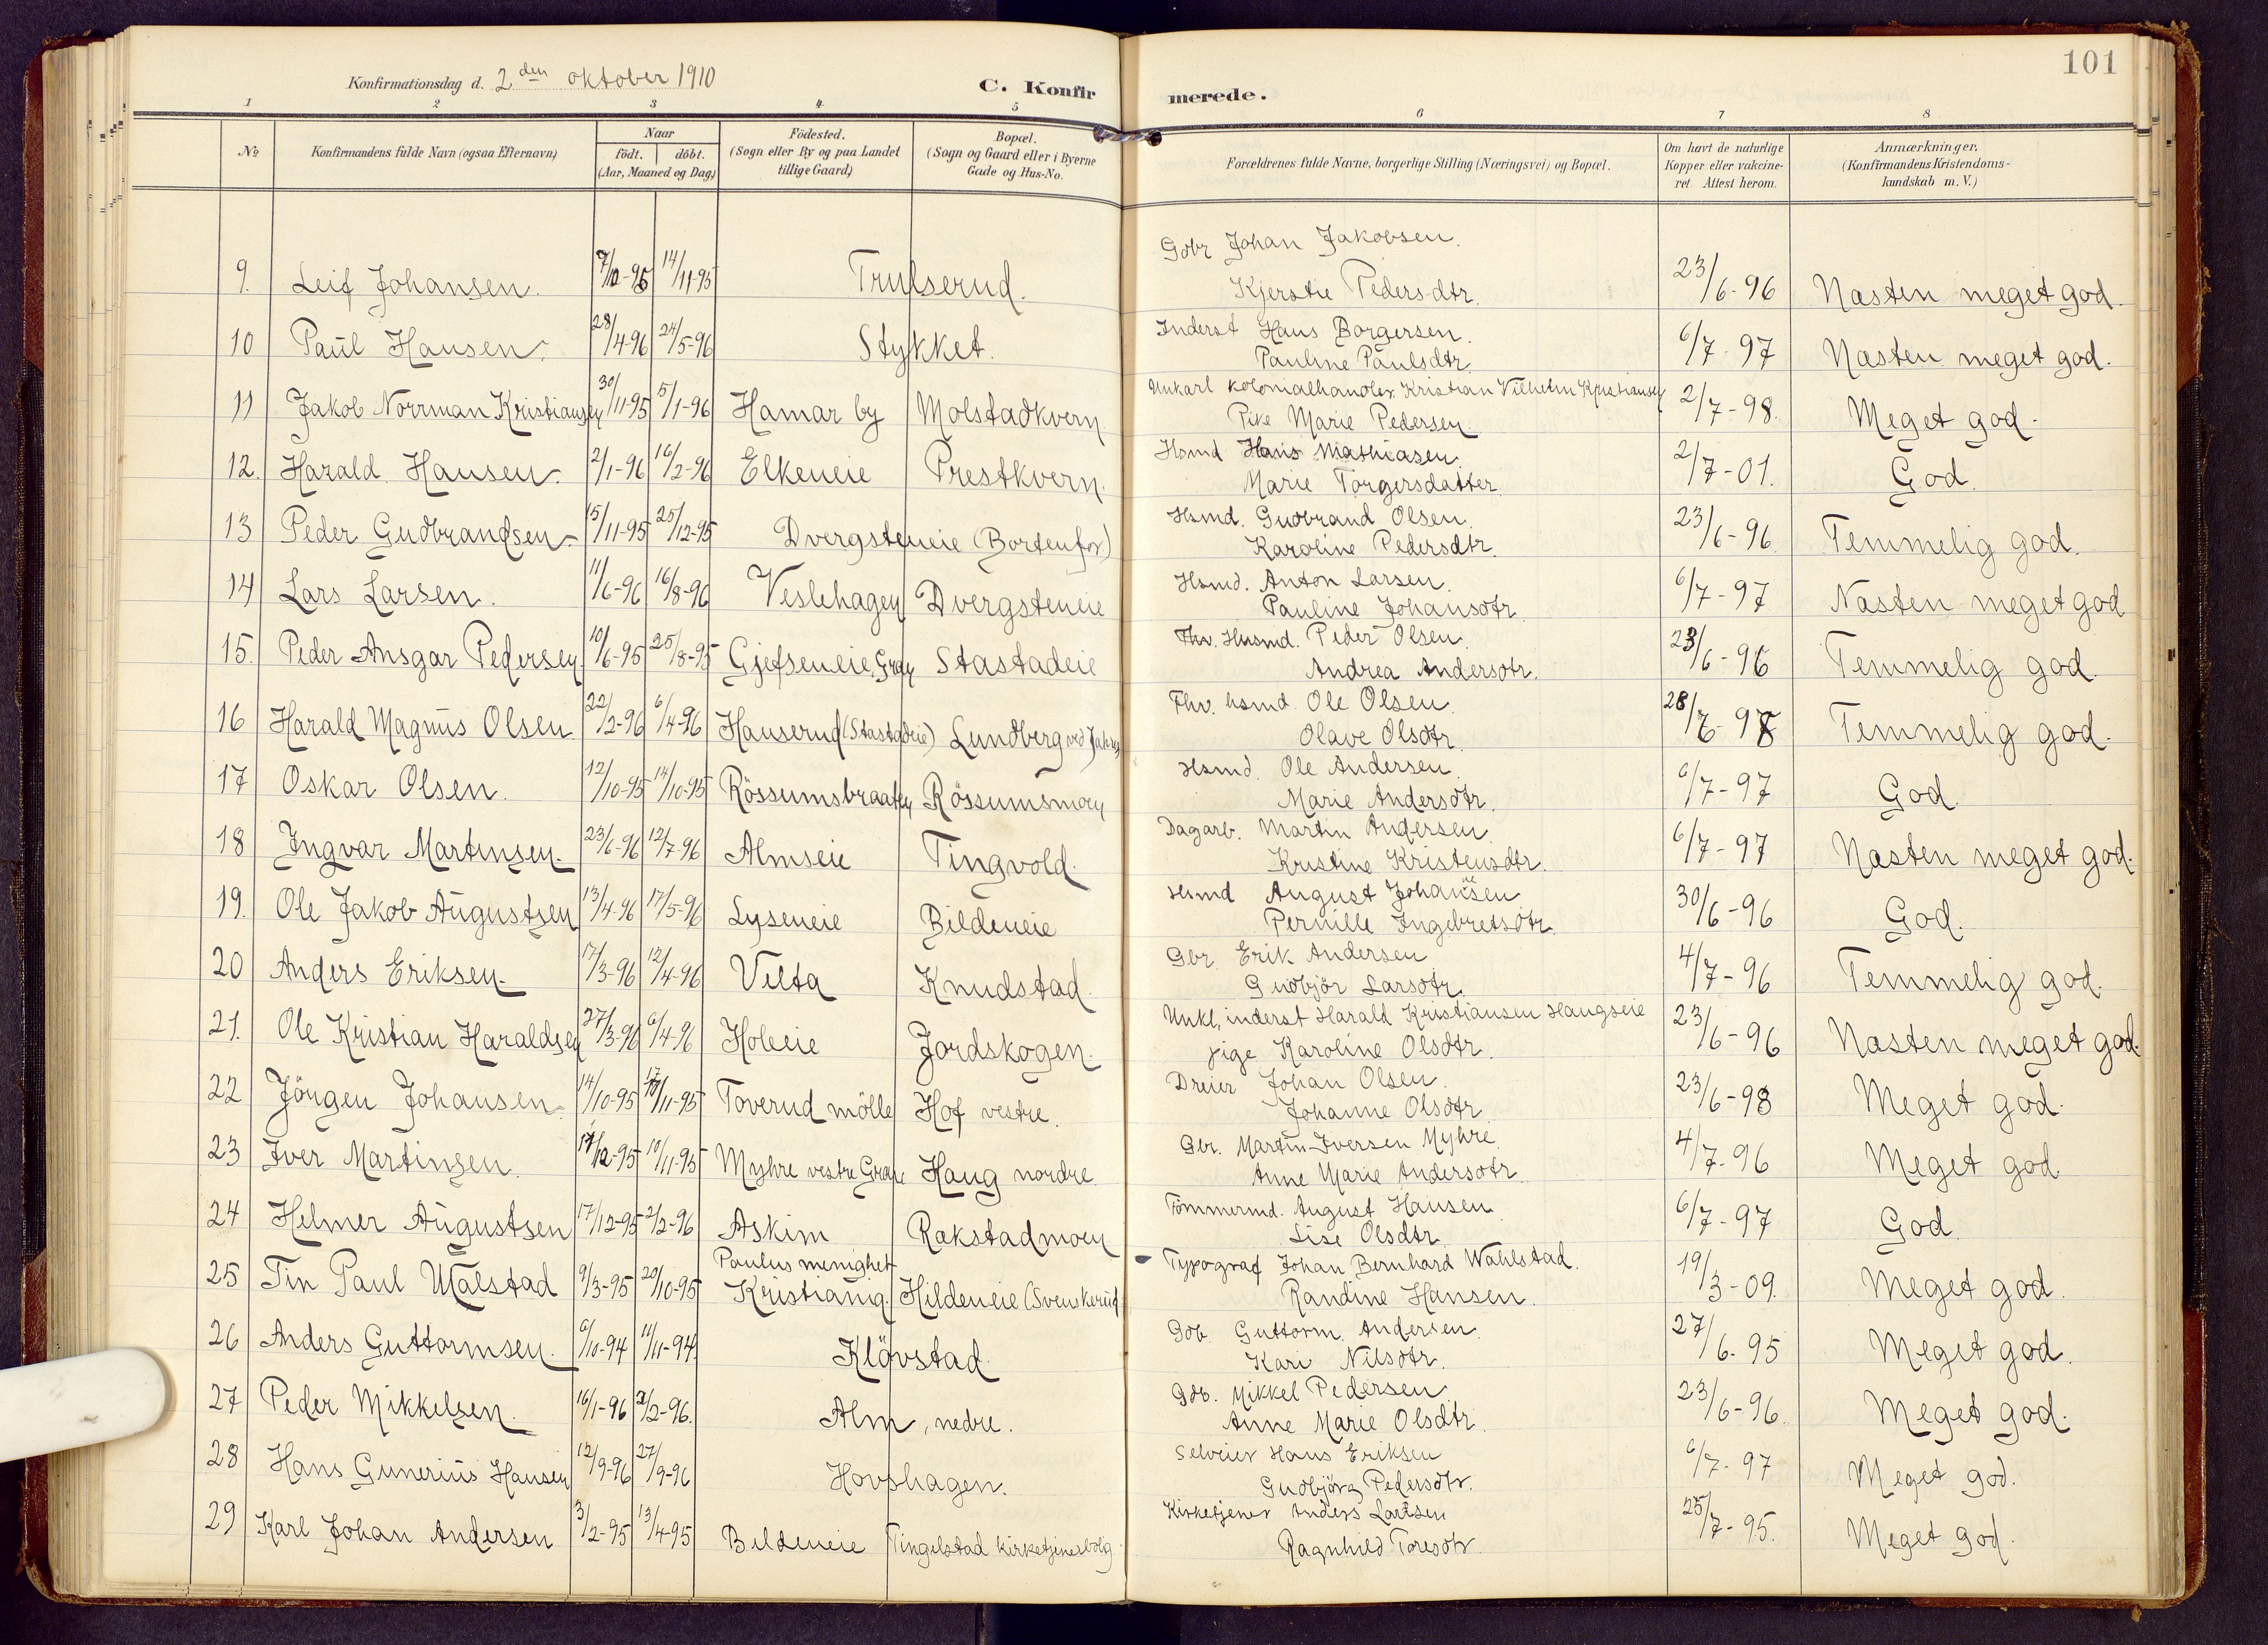 101
Konfirmationsdag d. 2den oktober 1910
C. Konfirmerede.
1 2 3 4 5 6 7 8
No
Konfirmandens fulde Navn (ogsaa Efternavn)
Naar
födt. döbt.
(Aar, Maaned og Dag.)
Födested.
(Sogn eller By og paa Landet
tillige Gaard)
Bopæl.
(Sogn og Gaard eller i Byerne
Gade og Hus-No.
Forældrenes fulde Navne, borgerlige Stilling (Næringsvei) og Bopæl.
Om havt de naturlige
Kopper eller vakcine-
ret. Attest herom.
Anmærkninger.
(Konfirmandens Kristendoms-
kundskab m. V.)
Gdbr Johan Jakobsen.
9. Leif Johansen. 7/10-95 14/11-95 Trulserud. Kjerstie Pedersdtr. 23/6-96 Næsten meget god.
Inderst Hans Borgersen.
10 Paul Hansen. 28/4-96 24/5-96 Stykket. Pauline Paulsdtr. 6/7-97 Næsten meget god.
Unkarl kolonialhandler Kristian Vilhelm Kristiansen
11 Jakob Norrman Kristiansen 30/11-95 5/1-96 Hamar by Molstadkvern Pike Marie Pedersen. 2/7-98. Meget god.
Hsmd Hans Mathiasen
12. Harald Hansen. 2/1-96 16/2-96 Elkeneie Prestkvern. Marie Torgersdatter. 2/7-01. God.
Hsmd. Gudbrand Olsen.
13 Peder Gudbrandsen. 15/11-95 25/12-95 Dvergsteneie (Bortenfor) Karoline Pedersdtr. 23/6-96. Temmelig god.
Hsmd. Anton Larsen.
14 Lars Larsen. 11/6-96 16/8-96 Veslehagen Dvergsteneie Pauline Johansdtr. 6/7-97 Næsten meget god
Fhv. Husmd. Peder Olsen.
15. Peder Ansgar Pedersen 10/6-95 25/8-95 Gjefseneie, Gran Stastadeie Andrea Andersdtr. 23/6-96 Temmelig god.
Fhv. hsmd. Ole Olsen.
16 Harald Magnus Olsen 22/2-96 6/4-96 Hanserud (Stastadeie) Lundberg ved Jahren Olave Olsdtr. 28/6-98 Temmelig god.
Hsmd. Ole Andersen.
17 Oskar Olsen. 12/10-95 14/10-95 Rössumsbraaten Rössumsmoen Marie Andersdtr. 6/7-97 God.
Dagarb. Martin Andersen.
18 Ingvar Martinsen. 23/6-96 12/7-96 Almseie Tingvold. Kristine Kristensdtr. 6/7-97 Næsten meget god.
Hsmd August Johansen
19. Ole Jakob Augustsen 13/4-96 17/5-96 Lyseneie Bildeneie Pernille Ingebretsdtr. 30/6-96 God.
Gbr. Erik Andersen
20 Anders Eriksen. 17/3-96 12/4-96 Velta Knudstad. Gudbjör Larsdtr. 4/7-96 Temmelig god.
Unkl, inderst Harald Kristiansen Haugseie
21. Ole Kristian Haraldsen 27/3-96 6/4-96 Holeeie Jordskogen. pige Karoline Olsdtr. 23/6-96 Næsten meget god.
Dreier Johan Olsen.
22 Jörgen Johansen. 14/10-95 17/11-95 Toverud mölle Hof vestre. Johanne Olsdtr 23/6-98 Meget god.
Gbr. Martin Iversen Myhre.
23 Iver Martinsen. 17/12-95 10/11-95 Myhre vestre Gran Haug nordre. Anne Marie Andersdtr. 4/7-96 Meget god.
Tömmermd. August Hansen
24 Helmer Augustsen 17/12-95 2/2-96 Askim Rakstadmoen Lise Olsdtr 6/7-97 God
Paulus menighet Typograf Johan Bernhard Wahlstad.
25 Tin Paul Walstad 9/3-95 20/10-95 Kristiania. Hildeneie (Svenskerud Randine Hansen. 19/3-09. Meget god.
Gdb. Guttorm Andersen.
26 Anders Guttormsen. 6/10-94 11/11-94. Klövstad. Kari Nilsdtr. 27/6-95 Meget god.
Gdb. Mikkel Pedersen
27 Peder Mikkelsen. 16/1-96 2/2-96. Alm, nedre. Anne Marie Olsdtr. 23/6-96. Meget god.
Selveier Hans Eriksen
28 Hans Gunerius Hansen 12/9-96 27/9-96 Hovshagen. Gudbjörg Pedersdtr. 6/7-97 Meget god.
Kirketjener Anders Larsen
29 Karl Johan Andersen 3/2-95 13/4-95 Bildeneie Tingelstad kirketjenerbolig. Ragnhild Toresdtr. 25/7-95. Meget god.